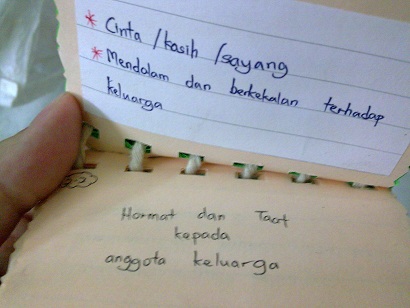 * Cinta /kasih /sayang
* Mendalam dan berkekalan terhadap
keluarga
Hormat dan Taat
kepada
anggota keluarga